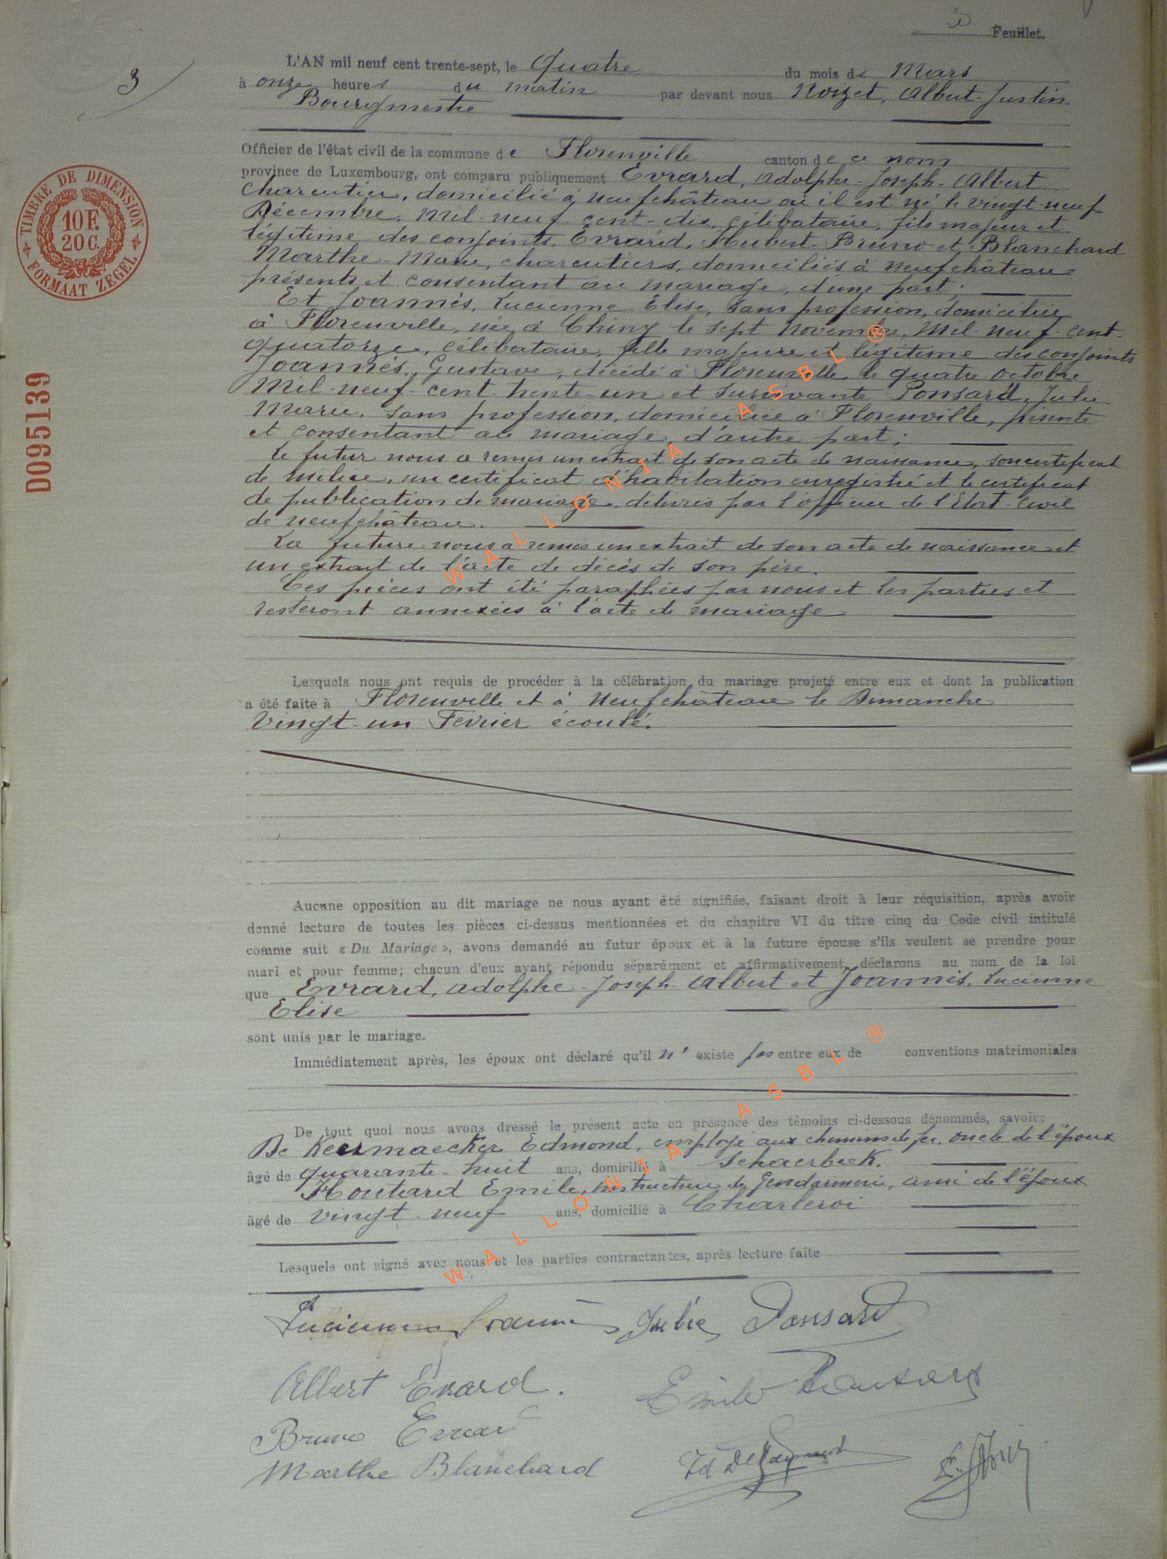 3
Feuillet.
L'AN mil neuf cent trente-sept, le Quatre du mois de Mars
à onze heures du matin par devant nous Noizet, Albert-Justin
Bourgmestre
Officier de l'état civil de la commune de Florenville canton de ce nom
province de Luxembourg, ont comparu publiquement Evrard, Adolphe-Joseph-Albert
Charcutier, domicilié à Neufchâteau où il est né le vingt-neuf
Décembre, Mil-neuf cent-dix, célibataire, fils majeur et
légitime des conjoints, Evrard, Hubert-Bruno et Blanchard
Marthe-Marie, charcutiers, domiciliés à Neufchâteau
présents et consentant au mariage, d'une part;
Et Joannès, Lucienne Elise, sans profession, domiciliée
à Florenville, née à Chiny le sept novembre, Mil neuf-cent-
quatorze, célibataire, fille majeure et légitime des conjoints
Joannès, Gustave, décédé à Florenville le quatre octobre
Mil-neuf-cent-trente-un et survivante Ponsard, Julie-
Marie, sans profession, domiciliée à Florenville, présente
et consentant au mariage, d'autre part;
Le futur nous a remis un extrait de son acte de naissance, son certificat
de milice, un certificat d'habitation enregistré et le certificat
de publication de mariage, délivrés par l'officier de l'Etat-Civil
de Neufchâteau.
La future nous a remis un extrait de son acte de naissance et
un extrait de l'acte de décès de son père.
Ces pièces ont été paraphées par nous et les parties et
resteront annexées à l'acte de mariage
Lesquels nous ont requis de procéder à la célébration du mariage projeté entre eux et dont la publication
a été faite à Florenville et à Neufchâteau le Dimanche
Vingt-un Février écoulé.
Aucune opposition au dit mariage ne nous ayant été signifiée, faisant droit à leur réquisition, après avoir
donné lecture de toutes les pièces ci-dessus mentionnées et du chapitre VI du titre cinq du Code civil intitulé
comme suit « Du Mariage », avons demandé au futur époux et à la future épouse s'ils veulent se prendre pour
mari et pour femme; chacun d'eux ayant répondu séparément et affirmativement, déclarons au nom de la loi
que Evrard, Adolphe-Joseph-Albert et Joannès, Lucienne
Elise
sont unis par le mariage.
Immédiatement après, les époux ont déclaré qu'il n'existe pas entre eux de conventions matrimoniales
De tout quoi nous avons dressé le présent acte en présence des témoins ci-dessous dénommés, savoir:
De Keermaecker Edmond, employé aux chemins de fer, oncle de l'époux
âgé de quarante-huit ans, domicilié à Schaerbeek.
Houtard Emile, instructeur de Gendarmerie, ami de l'époux
âgé de vingt-neuf ans, domicilié à Charleroi
Lesquels ont signé avec nous et les parties contractantes, après lecture faite
Lucienne Joannès Julie Ponsard
Albert Evrard. Emile Houtard
Bruno Evrard
Marthe Blanchard
TIMBRE DE DIMENSION
10 F.
20 C.
FORMAAT ZEGEL
D095139
WALLONIA ASBL ®
WALLONIA ASBL ®